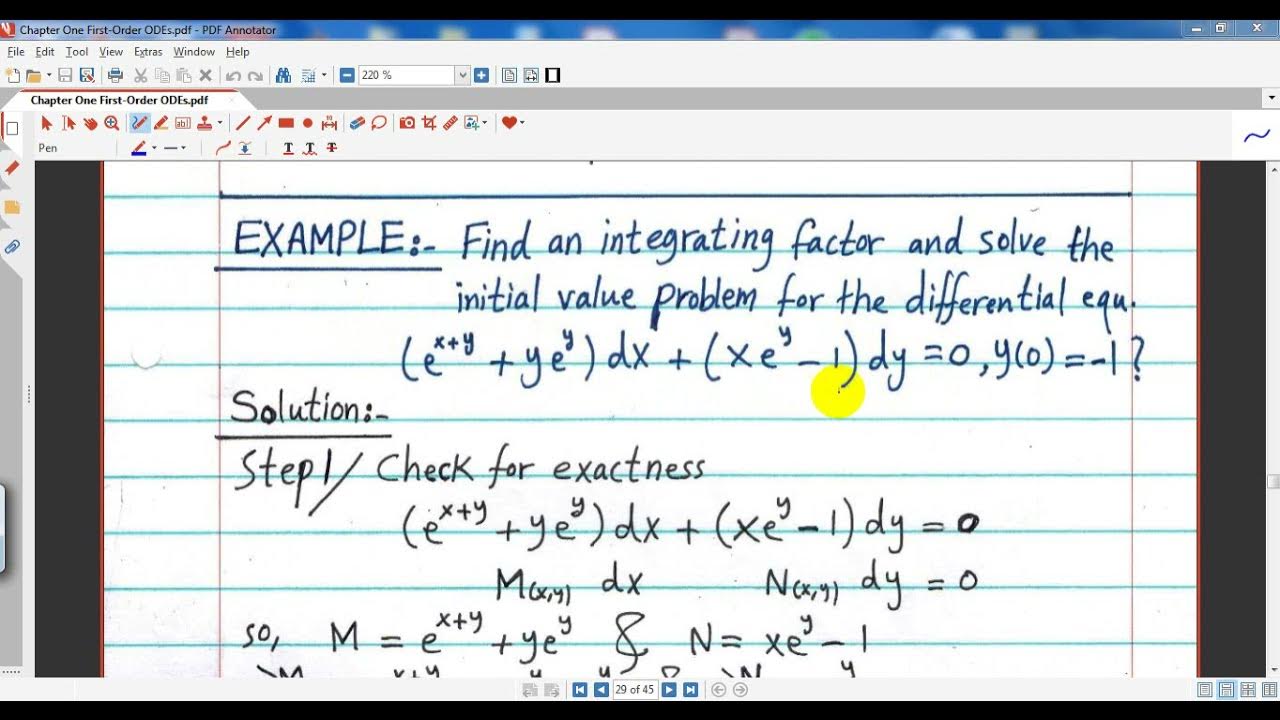 Chapter One First-Order ODEs.pdf - PDF Annotator
File Edit Tool View Extras Window Help
220 %
Chapter One First-Order ODEs.pdf
Pen
EXAMPLE:- Find an integrating factor and solve the
initial value problem for the differential equ.
(e^{x+y} + ye^y) dx + (xe^y - 1) dy = 0, y(0) = -1 ?
Solution:-
Step1/ Check for exactness
(e^{x+y} + ye^y) dx + (xe^y - 1) dy = 0
M(x,y) dx N(x,y) dy = 0
so, M = e^{x+y} + ye^y & N = xe^y - 1
29 of 45